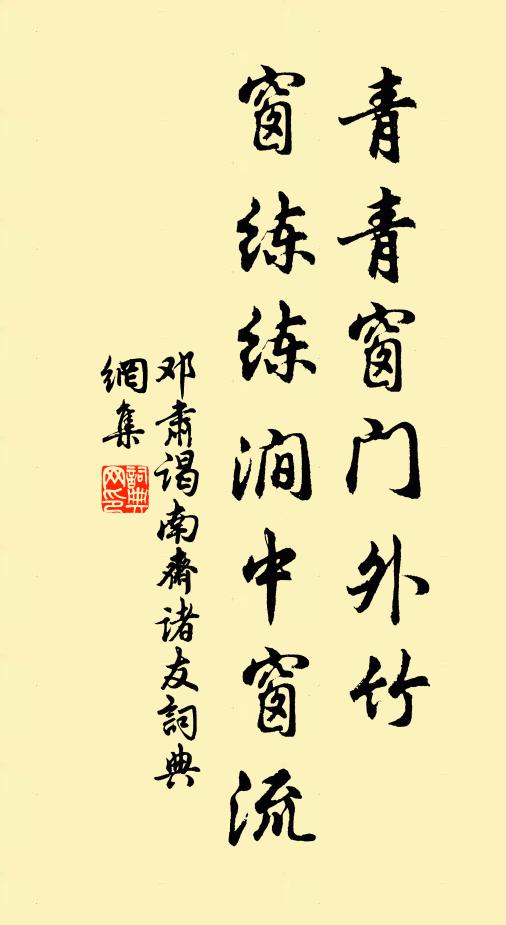 青青窗门外竹
窗练练涧中窗流
邓肃谒南斋诸友詞典
網集
詞典
网印